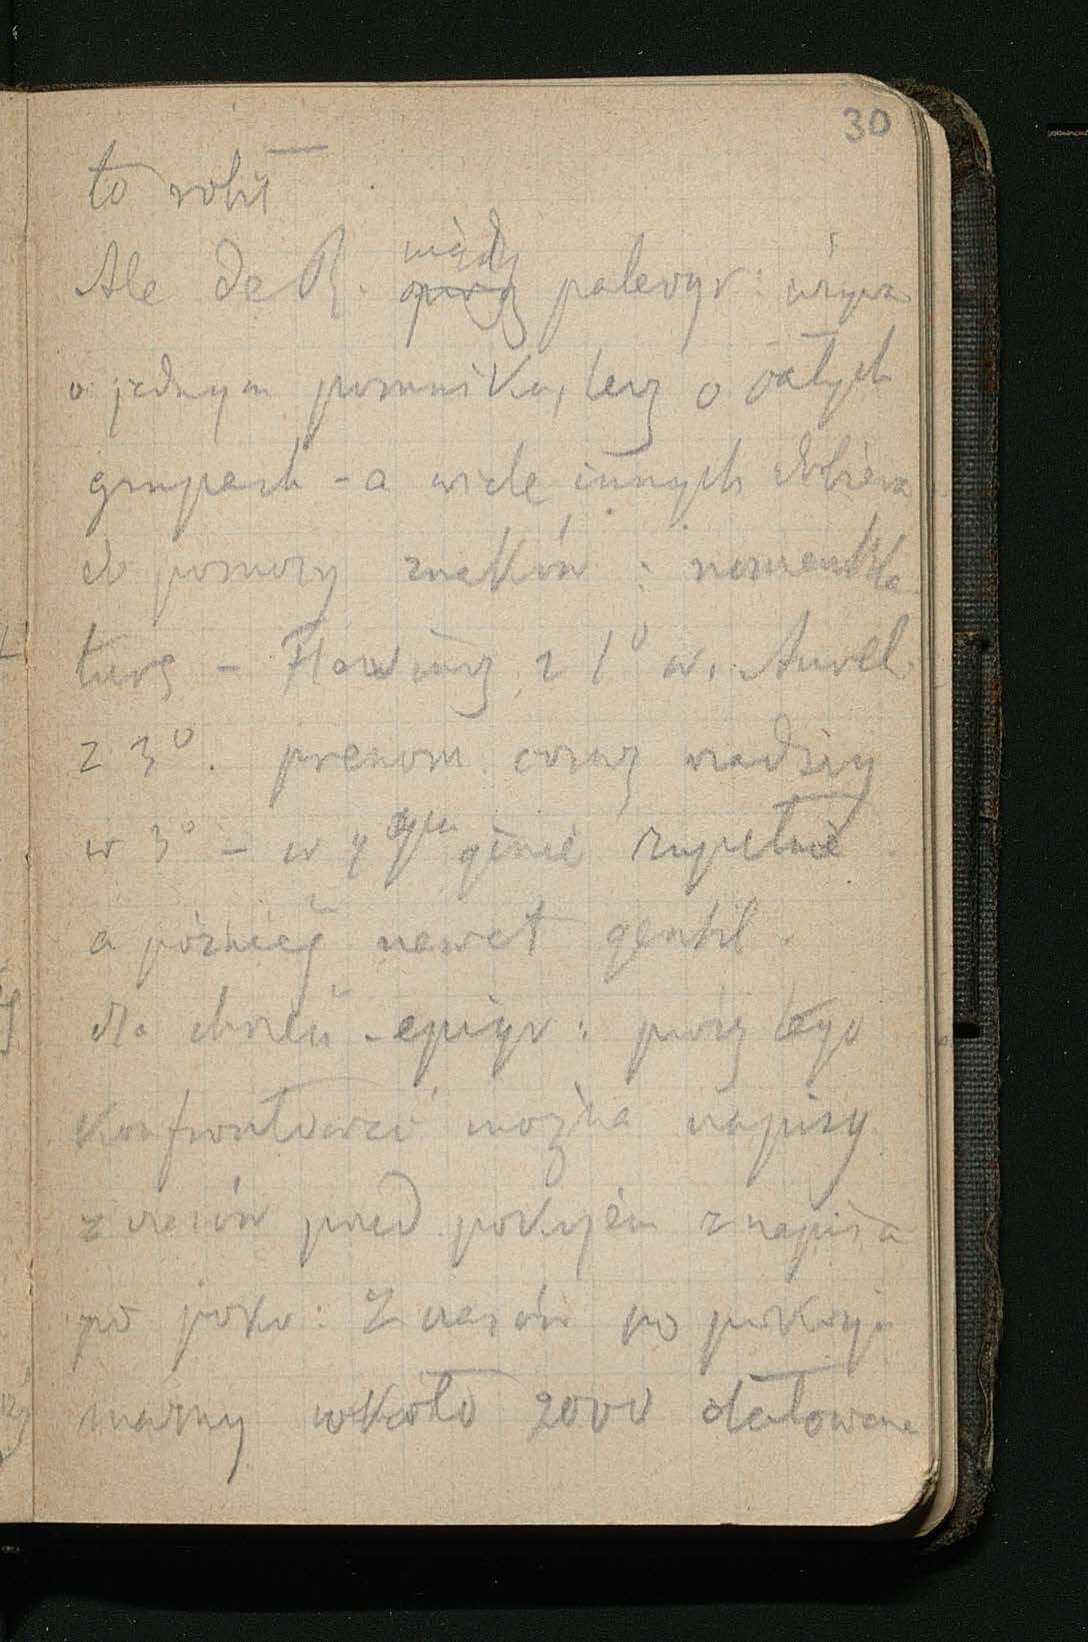 30
to robił
Ale de R. paleogr:
o jednym pomniku, lecz o całych
grupach - a wiele innych dobiera
do pomocy znaków : nomenkla
turę - z 1° w. Aurel.
z 3°. prenom. coraz rzadziej
w 3° - w 4 ginie zupełnie
a później nawet gentil.
dla chrześ - epigr: prócz tego
konfrontować można napisy
z czasów przed pokojem z napisa
po poko: Z czasów po pokoju
mamy około 2000 datowane